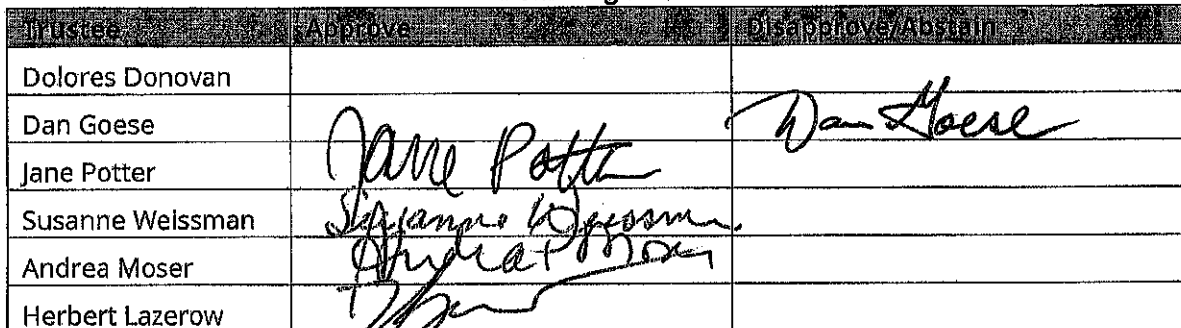 Trustee Approve Disapprove/Abstain
Dolores Donovan
Dan Goese Dan Goese
Jane Potter Jane Potter
Susanne Weissman Susanne Weissman
Andrea Moser Andrea Moser
Herbert Lazerow